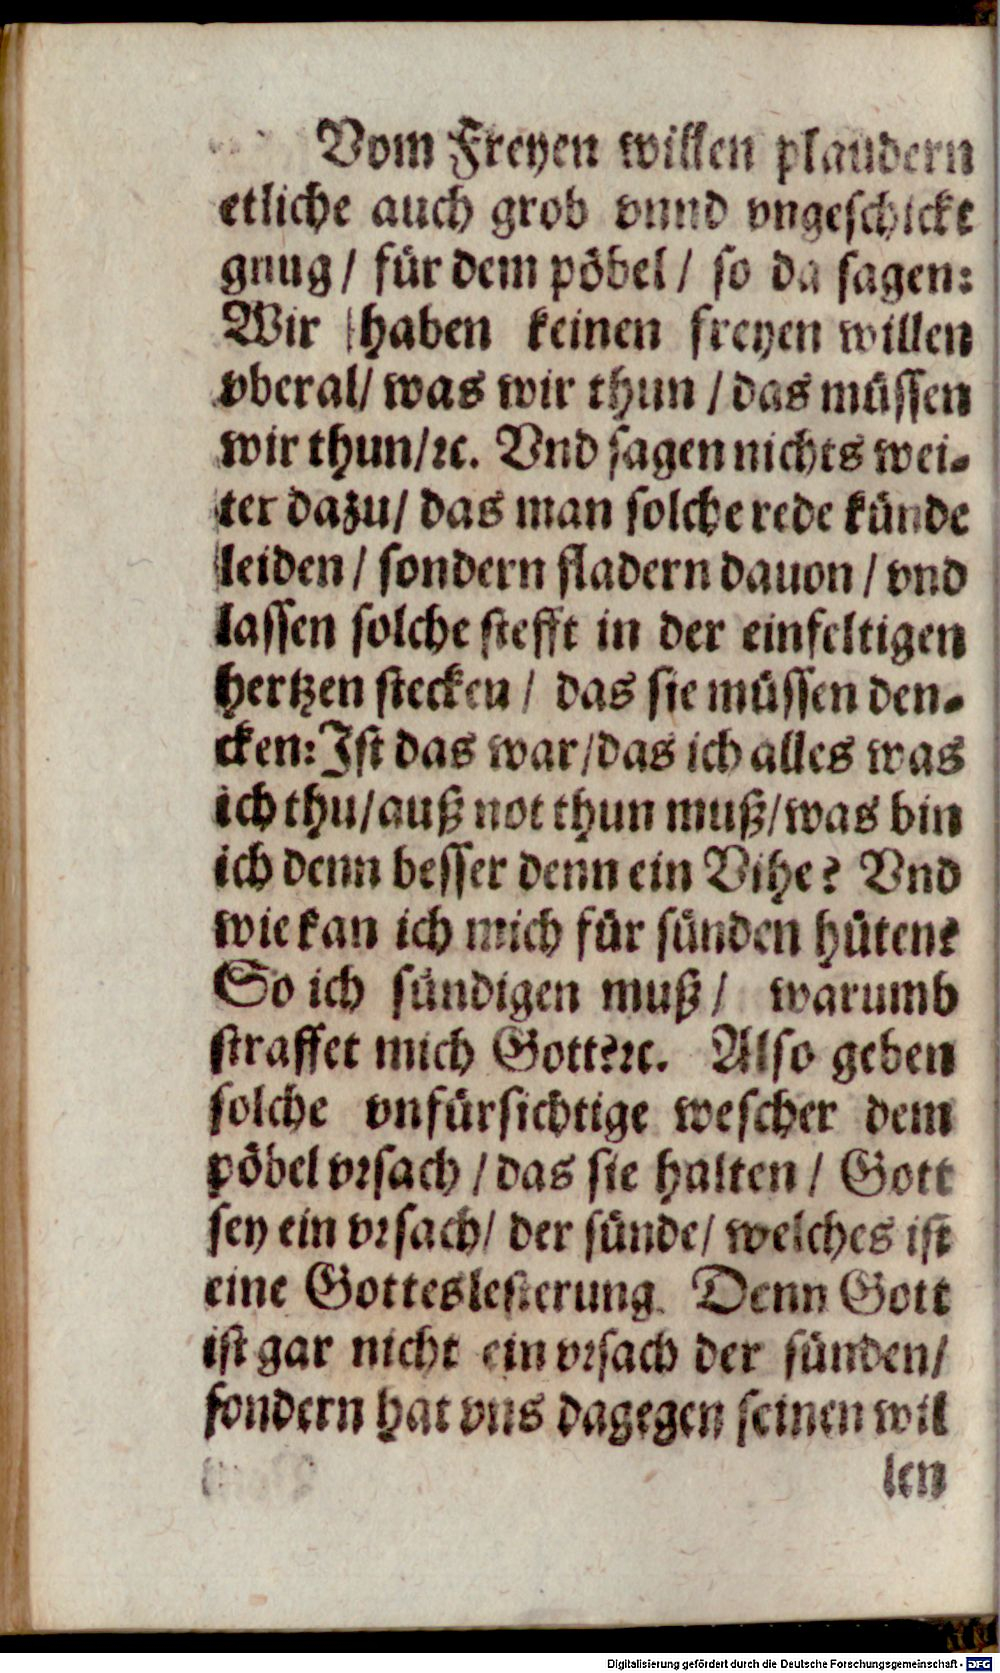 Vom Freyen willen plaudern
etliche auch grob vnnd vngeschickt
gnug / für dem pöbel / so da sagen:
Wir haben keinen freyen willen
vberal/ was wir thun / das müssen
wir thun/ꝛc. Vnd sagen nichts wei-
ter dazu/ das man solche rede künde
leiden / sondern fladern dauon / vnd
lassen solche stefft in der einfeltigen
hertzen stecken / das sie müssen den-
cken: Ist das war/das ich alles was
ich thu/auß not thun muß/was bin
ich denn besser denn ein Vihe? Vnd
wie kan ich mich für sünden hüten?
So ich sündigen muß / warumb
straffet mich Gott?ꝛc. Also geben
solche vnfürsichtige wescher dem
pöbel vrsach / das sie halten / Gott
sey ein vrsach/ der sünde/ welches ist
eine Gotteslesterung. Denn Gott
ist gar nicht ein vrsach der sünden/
sondern hat vns dagegen seinen wil
len
Digitalisierung gefördert durch die Deutsche Forschungsgemeinschaft - DFG